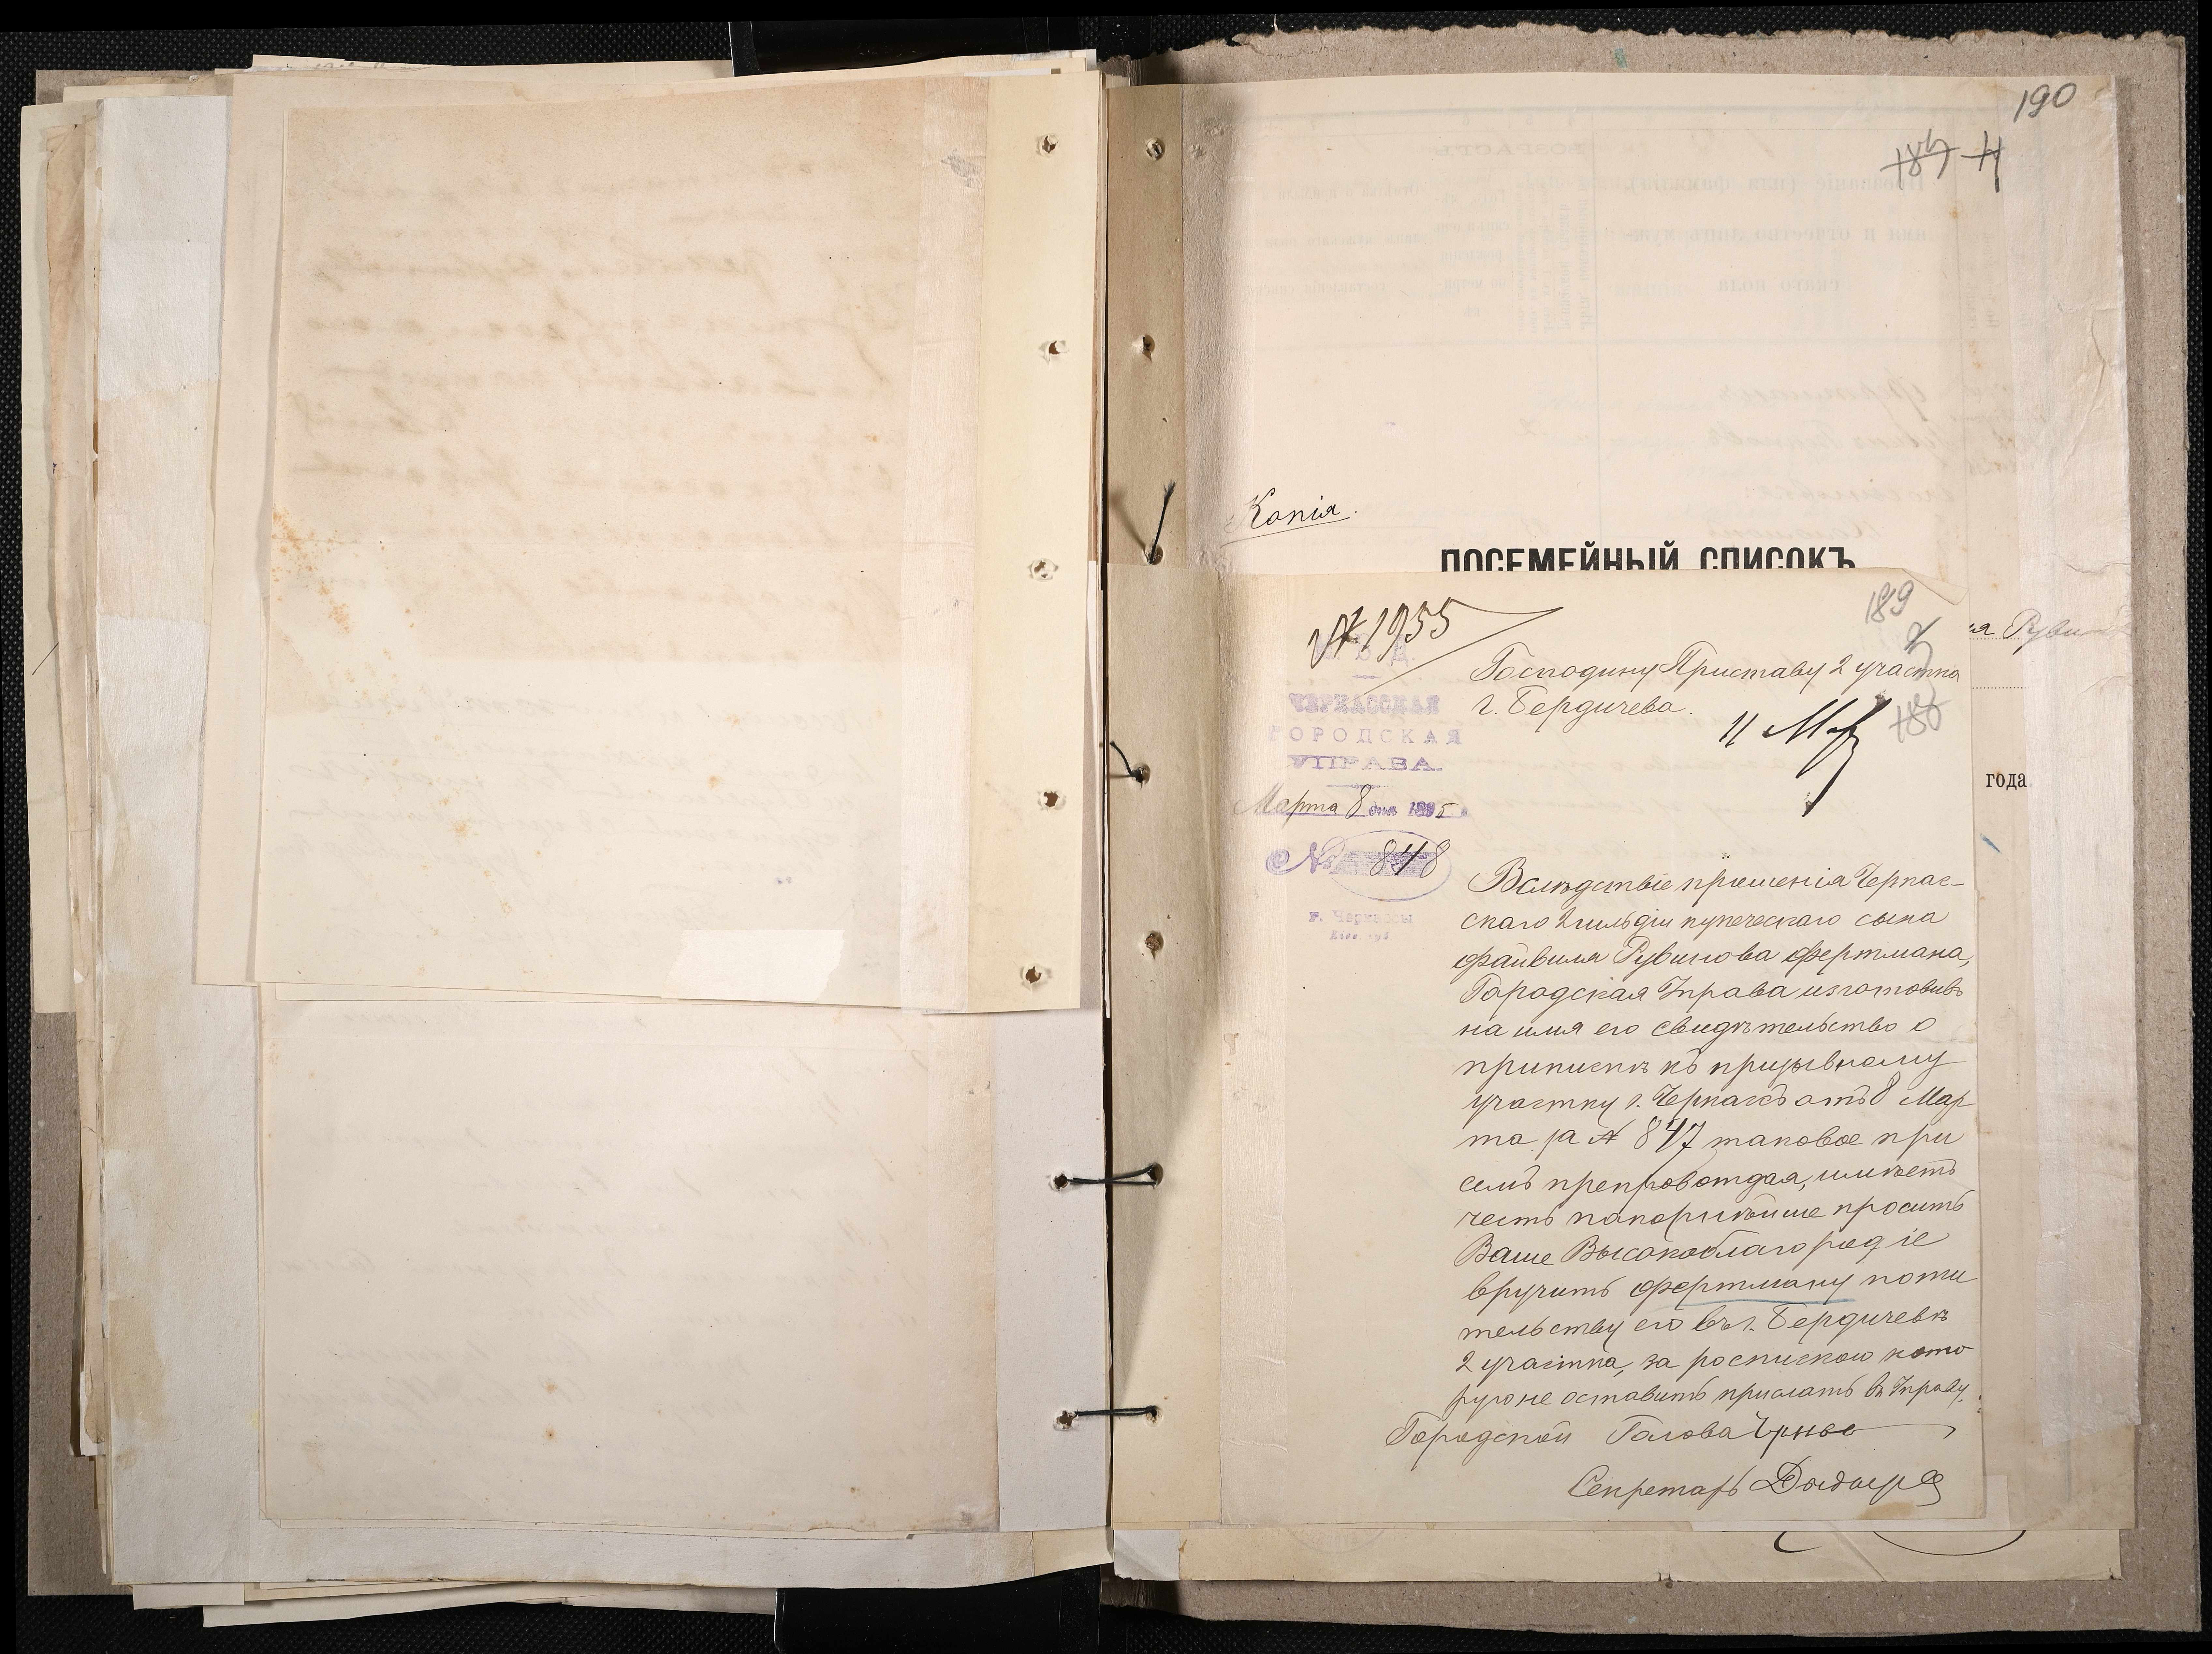 190
Копія.
ПОСЕМЕЙНЫЙ СПИСОКЪ
189
№ 1955
Господину Приставу 2 участка
г. Бердичева.
М. В. Д.
ЧЕРКАССКАЯ
ГОРОДСКАЯ
УПРАВА.
Марта 8 дня 1895 г.
№ 848
г. Черкассы
Кіев. губ.
года
Вслѣдствіе прошенія Черкас-
скаго 2 гильдіи купеческаго сына
Файвиля Рувинова Фертмана,
Городская Управа изготовивъ
на имя его свидѣтельство о
припискѣ къ призывному
участку г. Черкассъ отъ 8 Мар
та за № 847 таковое при
семъ препровождая, имѣетъ
честь покорнѣйше просить
Ваше Высокоблагородіе
вручить Фертману по жи
тельству его въ г. Бердичевѣ
2 участка, за роспискою кото
рую не оставить прислать въ Управу.
Городской Голова
Секретарь